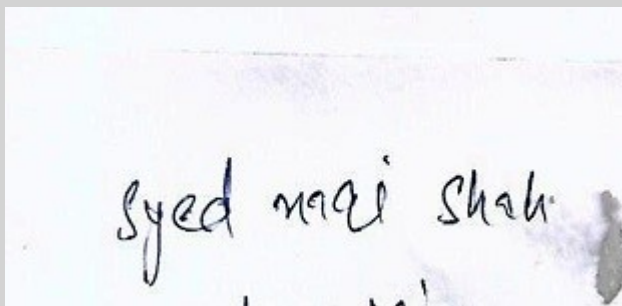 Syed naqi Shah